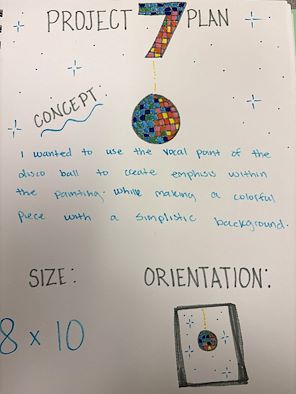 PROJECT 7 PLAN
CONCEPT:
I wanted to use the vocal point of the
disco ball to create emphisis within
the painting. while making a colorful
piece with a simplistic background.
SIZE:
ORIENTATION:
8 x 10